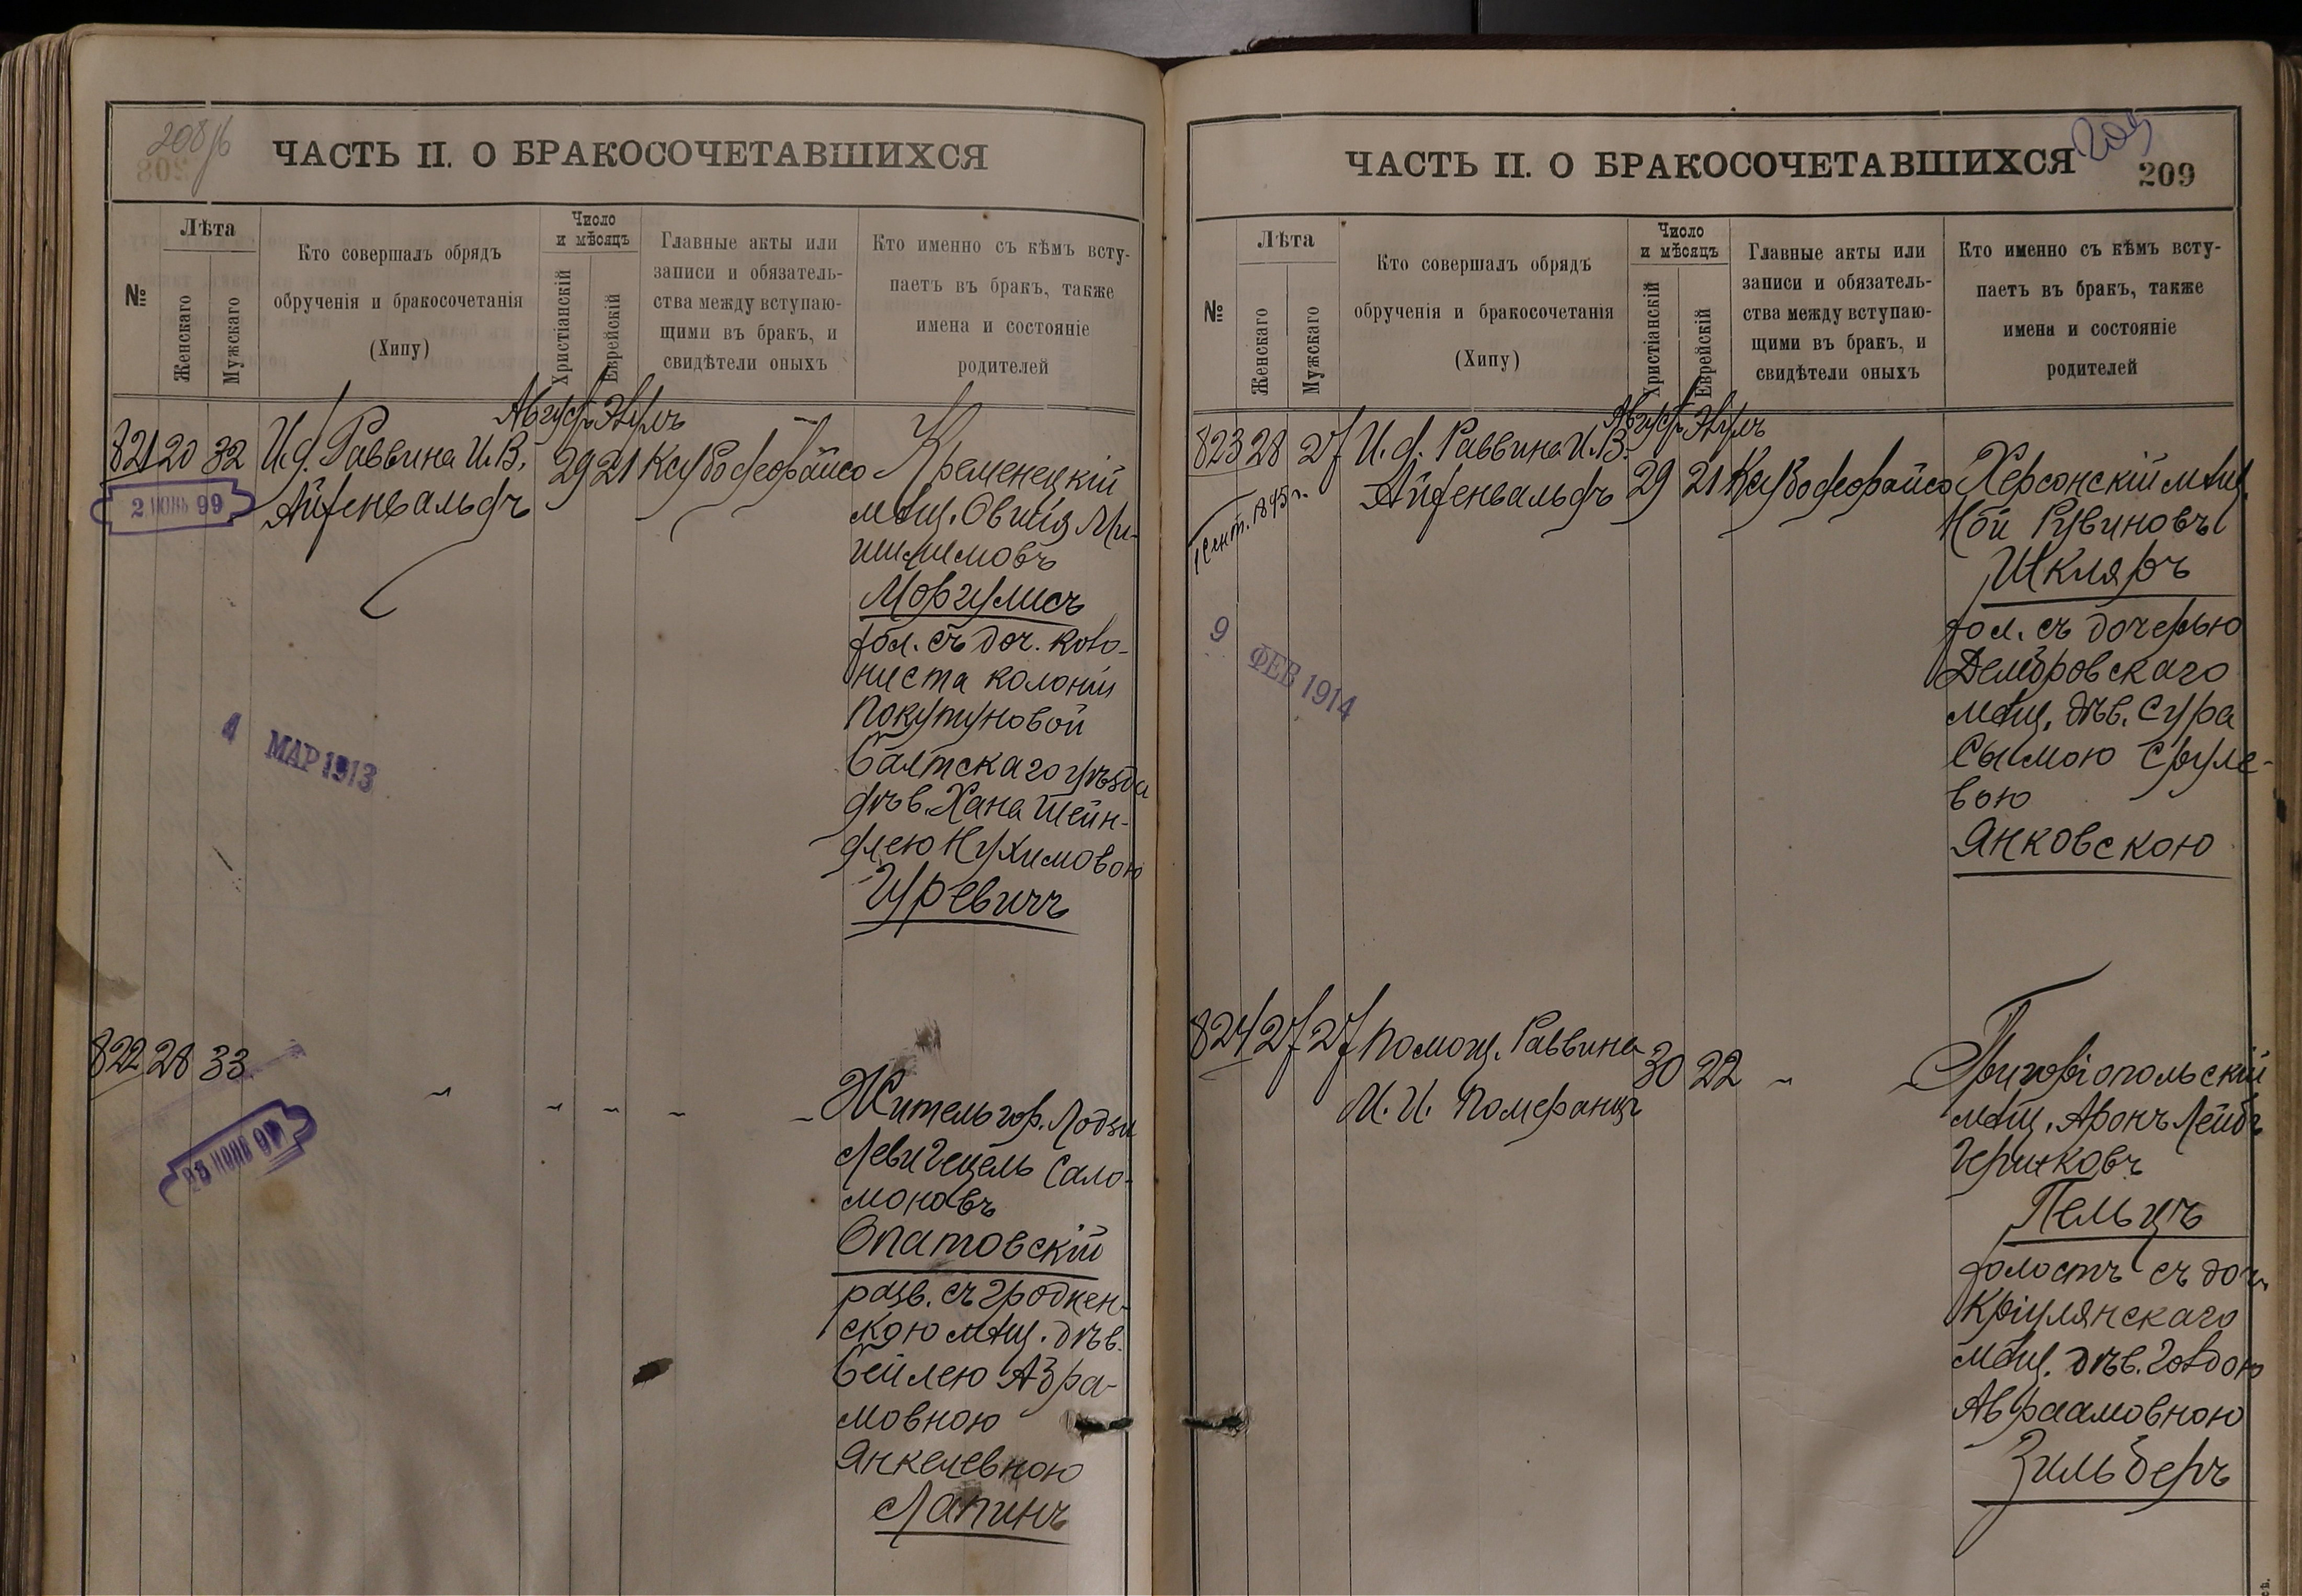 208
ЧАСТЬ II. О БРАКОСОЧЕТАВШИХСЯ
№
Лѣта
Женскаго
Мужскаго
Кто совершалъ обрядъ
обрученія и бракосочетанія
(Хипу)
Число
и мѣсяцъ
Христіанскій
Еврейскій
Главные акты или
записи и обязатель-
ства между вступаю-
щими въ бракъ, и
свидѣтели оныхъ
Кто именно съ кѣмъ всту-
паетъ въ бракъ, также
имена и состояніе
родителей
Август. Элулъ
821 20 32 И. д. Раввина И. В. 29 21
Айзенвальдъ
2 ІЮНЬ 99
Кременецкій
мѣщ. Овшія
Моргулисъ
хол. съ доч. коло-
ниста колоніи
Покутуновой
Балтскаго уѣзда
дѣв. Хана Шейн-
длею Нухимовою
Гуревичъ
4 МАР 1913
822 28 33 — — — — —
Житель гор. Лодзи
Леви Гецель Сало-
моновъ
Опатовскій
разв. съ гроднен-
скою мѣщ. дѣв.
Бейлею Абра-
мовною
Янкелевною
Лапинъ
ЧАСТЬ II. О БРАКОСОЧЕТАВШИХСЯ
209
209
№
Лѣта
Женскаго
Мужскаго
Кто совершалъ обрядъ
обрученія и бракосочетанія
(Хипу)
Число
и мѣсяцъ
Христіанскій
Еврейскій
Главные акты или
записи и обязатель-
ства между вступаю-
щими въ бракъ, и
свидѣтели оныхъ
Кто именно съ кѣмъ всту-
паетъ въ бракъ, также
имена и состояніе
родителей
Август. Элулъ
823 28 27 И. д. Раввина И. В. 29 21
Айзенвальдъ
1 Сент. 1895 г.
9 ФЕВ 1914
Херсонскій мѣщ.
Іой Рувиновъ
Шкляръ
хол. съ дочерью
мѣщ. дѣв. Сура
Сымою Сруле-
вою
Янковскою
824 27 27 Помощ. Раввина 30 22 —
И. И. Померанцъ
Григоріопольскій
мѣщ. Аронъ Лейбъ
Гершковъ
Пельцъ
холостъ съ доч.
Кріулянскаго
мѣщ. дѣв. Голдою
Авраамовною
Зильберъ